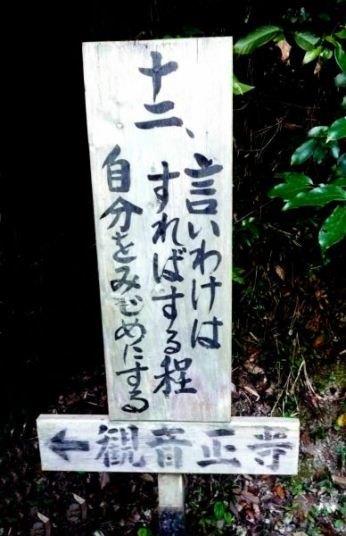 十二、
言いわけは
すればする程
自分をみじめにする
←観音正寺